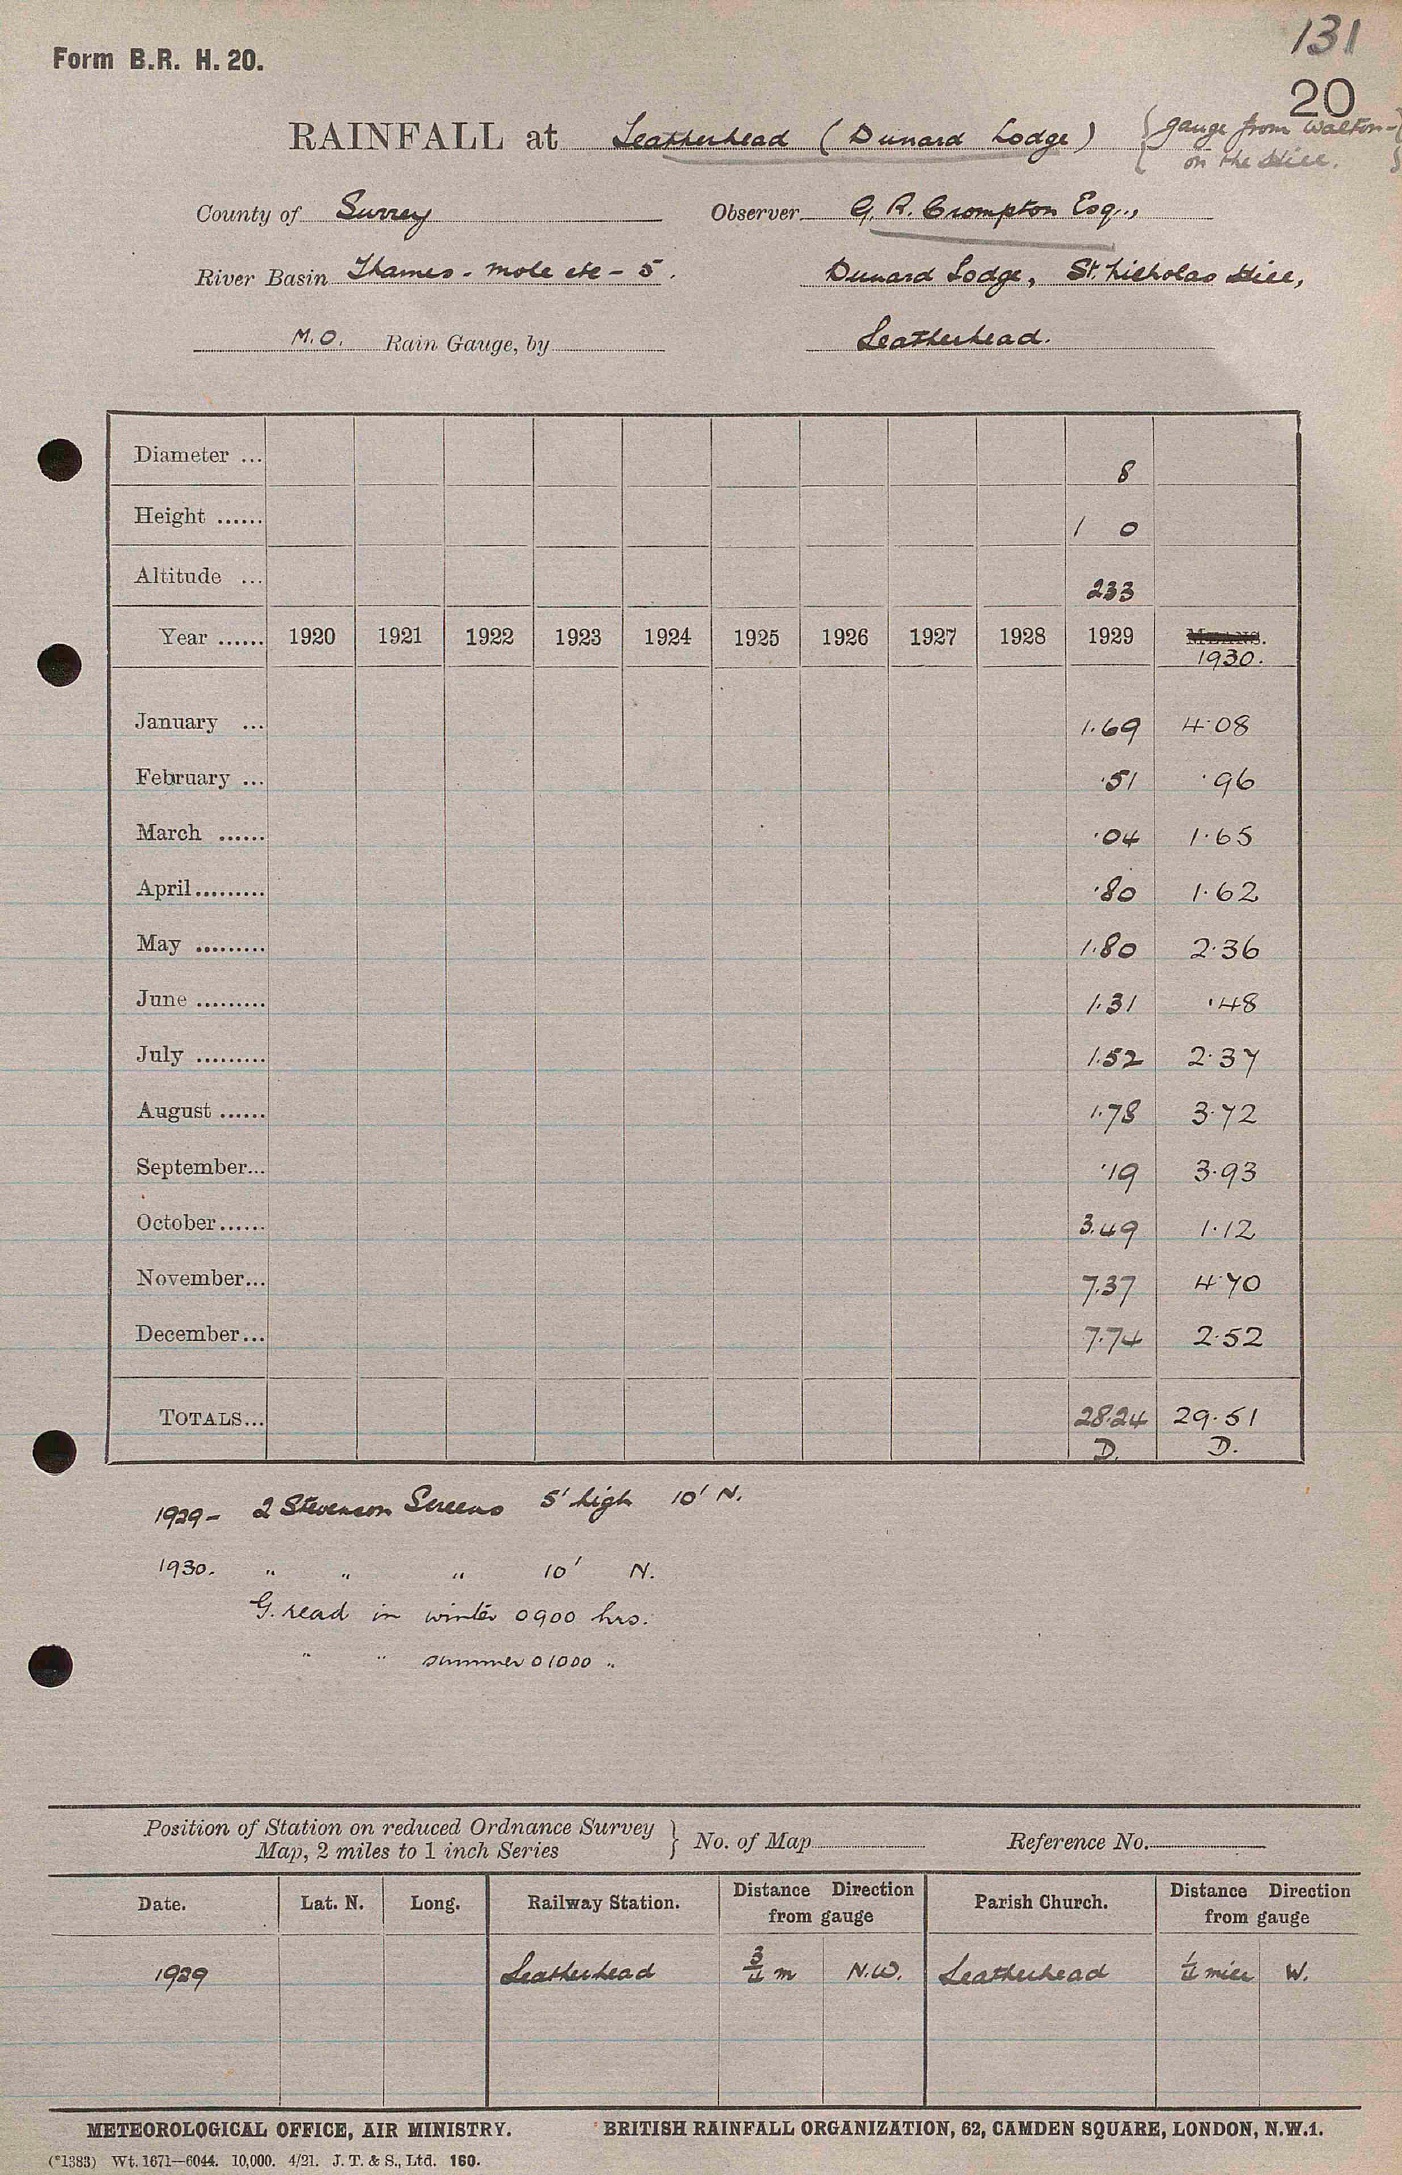 131
Form B.R. H. 20.
20
RAINFALL at Leatherhead (Dunard Lodge) {gauge from Walton-
on the Hill.}
County of Surrey Observer G. R. Crompton Esq.,
River Basin Thames - Mole etc - 5. Dunard Lodge, St. Nicholas Hill,
M.O. Rain Gauge, by Leatherhead.
Diameter ... 8
Height ...... 1 0
Altitude ... 233
Year ...... 1920 1921 1922 1923 1924 1925 1926 1927 1928 1929 MEANS.
1930.
January ... 1.69 4.08
February ... .51 .96
March ...... .04 1.65
April ......... .80 1.62
May ......... 1.80 2.36
June ......... 1.31 .48
July ......... 1.52 2.37
August ...... 1.78 3.72
September... .19 3.93
October...... 3.49 1.12
November... 7.37 4.70
December... 7.74 2.52
TOTALS... 28.24 29.51
D. D.
1929 - 2 Stevenson Screens 5' high 10' N.
1930. " " " 10' N.
G. read in winter 0900 hrs.
" " summer 01000 "
Position of Station on reduced Ordnance Survey
Map, 2 miles to 1 inch Series } No. of Map Reference No.
Date. Lat. N. Long. Railway Station. Distance Direction from gauge Parish Church. Distance Direction from gauge
1929 Leatherhead 3/4 m N.W. Leatherhead 1/4 mile W.
METEOROLOGICAL OFFICE, AIR MINISTRY. BRITISH RAINFALL ORGANIZATION, 62, CAMDEN SQUARE, LONDON, N.W.1.
(*1383) Wt. 1671—6044. 10,000. 4/21. J. T. & S., Ltd. 160.